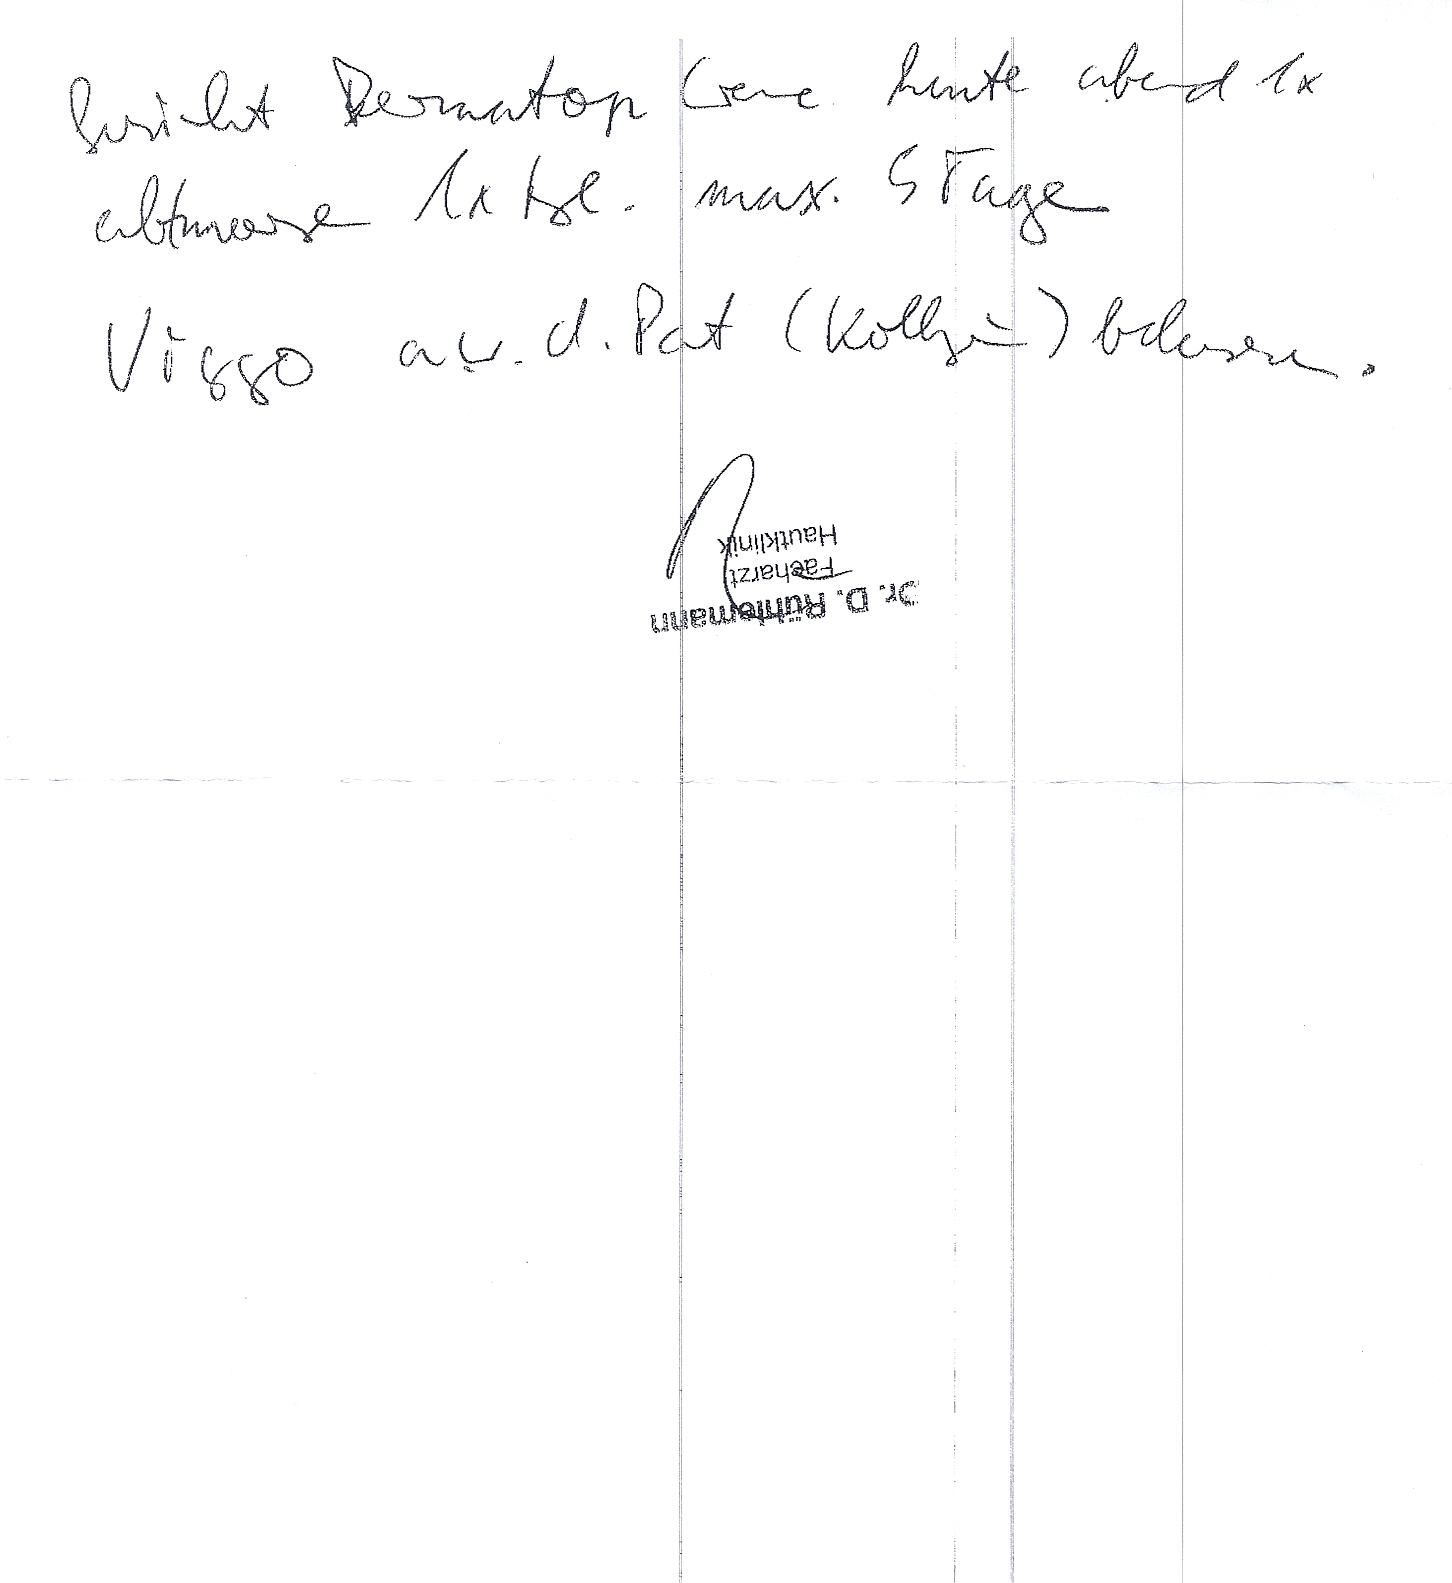 Gesicht Dermatop Creme heute abend 1x
ab morgen 1x tgl. max. 5 Tage
Viggo a.W. d. Pat (Kollegin) belassen.
Hautklinik
Facharzt
Dr. D. Rühlemann